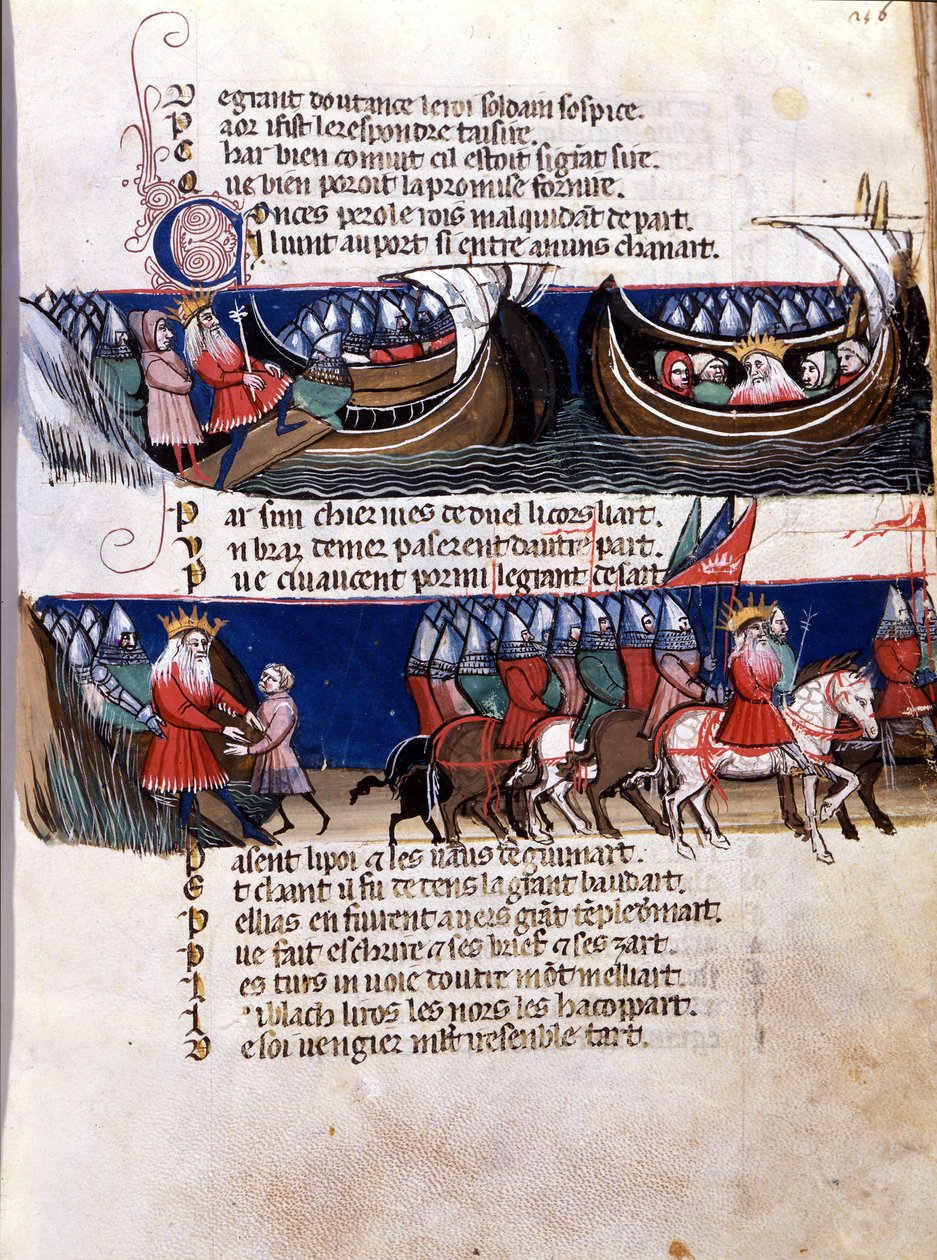 246
D egrant doutance le roi soldain sospice.
P aor i fist le respondre taisire.
E har bien conuit cil estoit si grãt sire.
Q ue bien poroit la promise fornire.
C onces perole rois malquidãt depart.
I l uint au port si entre a nuns chanart.
P ar sun chier nies de duel li cors li art.
V n braz demer paserent dautre part.
P ue civaucent por mi le grant desart
P asent lipoi ⁊ les uaus de guimart.
E t chant il fu de dens la grant baudart.
P ellias en fuirent a uers grãt
P ue fait eschrire ⁊ ses brief ⁊ ses zart.
L es turs in uoie doutre mõt melliart.
L i blach li ros les nors les hacoppart.
D e soi uengier resenble tart.